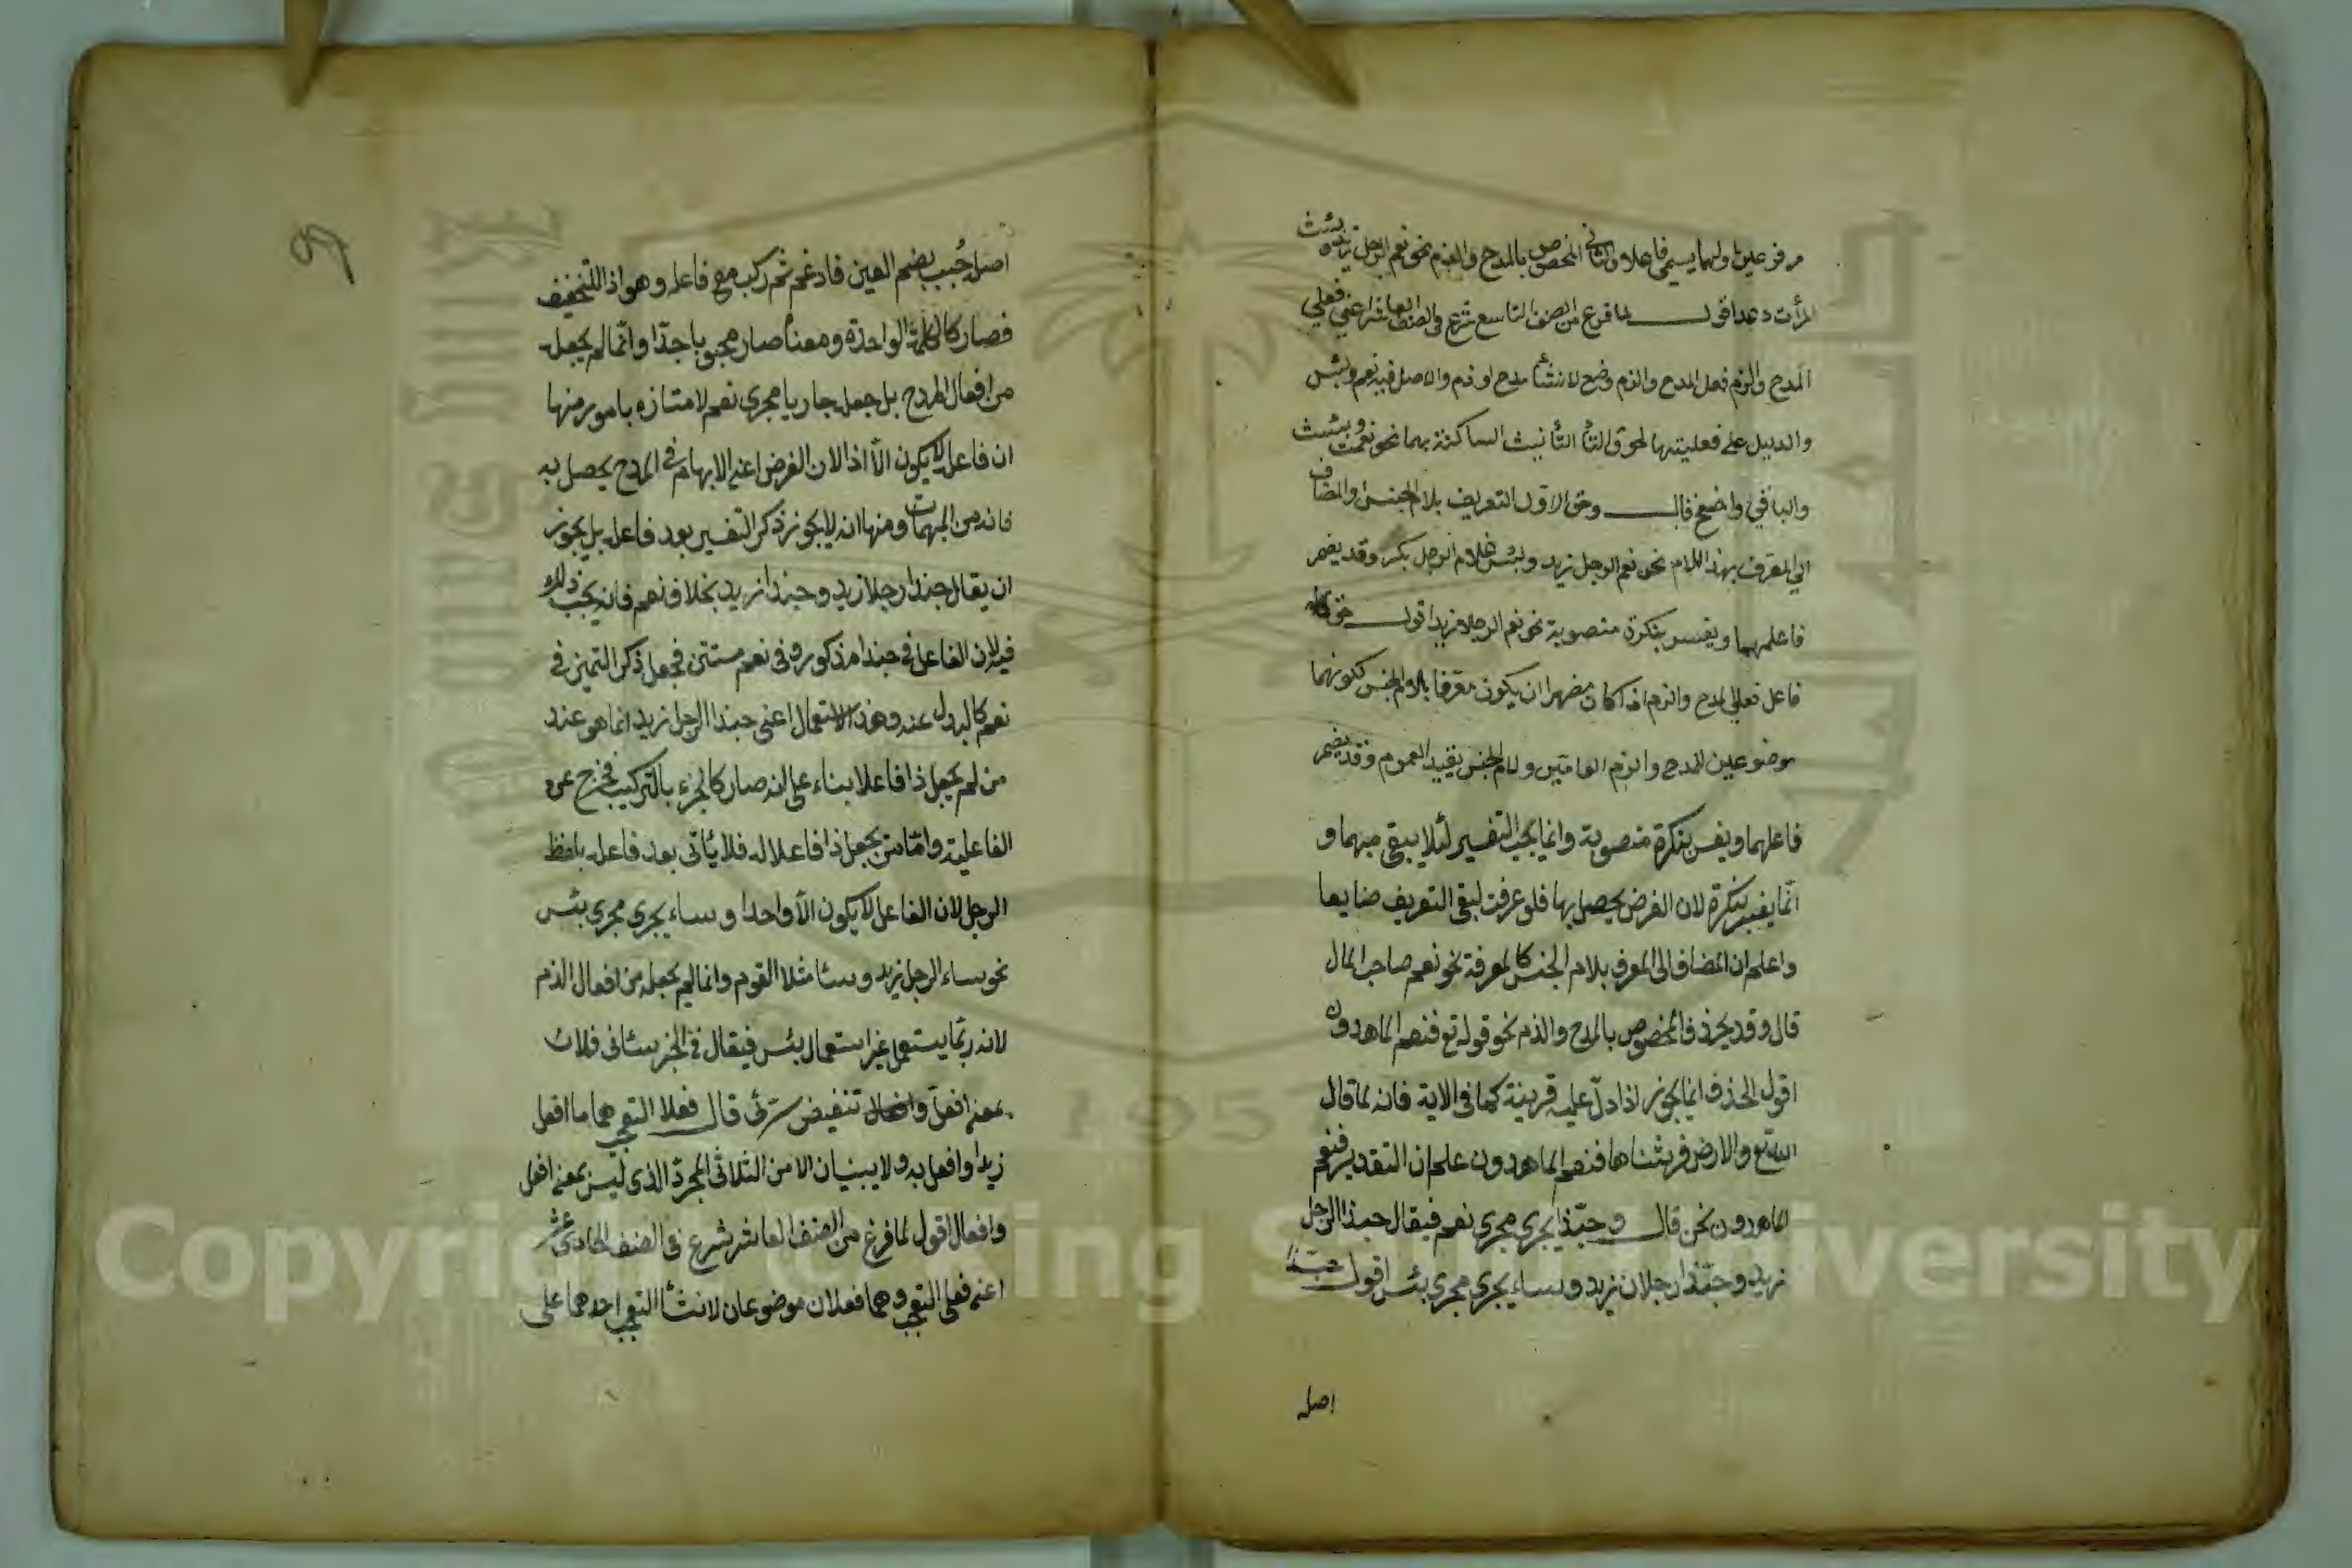 مرفوعين اولهما يسمي فاعلا والثاني المخصوص بالمدح والذم نحو نعم الرجل زيد وبئست
المرأت دعد اقول لما فرغ من الصنف التاسع شرع في الصنف العاشر اعني فعلي
المدح والذم فعل المدح والذم وضع لانشأ مدح او ذم والاصل فيه نعم وبئس
والدليل علي فعليتهما لحوق التأ التأنيث الساكنة بهما نحو نعمت وبئست
والباقي واضح قال وحق الاول التعريف بلام الجنس والمضاف
الي المعرف بهذا اللام نحو نعم الرجل زيد وبئس غلام الرجل بكر وقد يضمر
فاعلهما ويفسر بنكرة منصوبة نحو نعم الرجلا زيد اقول حق
فاعل فعلي المدح والذم اذا كان مضهرا ان يكون معرفا بلام الجنس لكونهما
موضوعين للمدح والذم العامين ولام الجنس يفيد العموم وقد يضمر
فاعلهما ويفسر بنكرة منصوبة وانما يجب التفسير لئلا يبقي مبهما و
انما يفسر بنكرة لان الغرض يحصل بها فلو عرفت لبقي التعريف ضايعا
واعلم ان المضاف الي المعرف بلام الجنس كالمعرفة نحو نعم صاحب المال
قال وقد يحذف المخصوص بالمدح والذم نحو قوله تع فنعم الماهدون
اقول الحذف انما يجوز اذا دل عليه قرينة كما في الاية فانه لما قال
الله تع والارض فرشناها فنعم الماهدون علم ان التقدير فنعم
الماهدون نحن قال وحبذا يجري مجري نعم فيقال حبذا الرجل
زيد وحبذا رجلان زيد وساء يجري مجري بئس اقول حبذا
اصله
اصل حبب بضم العين فادغم ثم ركب مع فاعله وهو اذا للتخفيف
فصار كالكلمة الواحدة ومعناه صار محبوبا جدا وانما لم يجعل
من افعال المدح بل جعل جاريا مجري نعم لامتيازه بامور منها
ان فاعله لا يكون الا اذا لان الغرض اعني الابهام في المدح يحصل به
فانه من المبهمات ومنها انه لا يجوز ذكر التفسير بعد فاعله بل يجوز
ان يقال حبذا رجلا زيد وحبذا زيد بخلاف نعم فانه يجب ذلك
فيه لان الفاعل في حبذا مذكور وفي نعم مستتر فجعل ذكر التميز في
نعم كالبدل عنه وهذ الاستعمال اعني حبذا الرجل زيد انما هو عند
من لم يجعل ذا فاعلا بناء علي انه صار كالجزء بالتركيب فخرج عن
الفاعلية واما من يجعل ذا فاعلا له فلا يأتي بعد فاعله بلفظ
الرجل لان الفاعل لا يكون الا واحدا وساء يجري مجري بئس
نحو ساء الرجل زيد وسا مثلا القوم وانما لم يجعله من افعال الذم
لانه ربما يستعمل غير استعمال بئس فيقال في الخبر سائني فلان
تنقيض سرني قال فعلا التعجب هما ما افعل
زيدا وافعل به ولا يبنيان الا من الثلاثي المجرد الذي ليس بمعني افعل
وافعال اقول لما فرغ من الصنف العاشر شرع في الصنف الحادي عشر
اعني فعلي التعجب وهما فعلان موضوعان لانشأ التعجب احدهما علي
Copyright © King Saud University
195